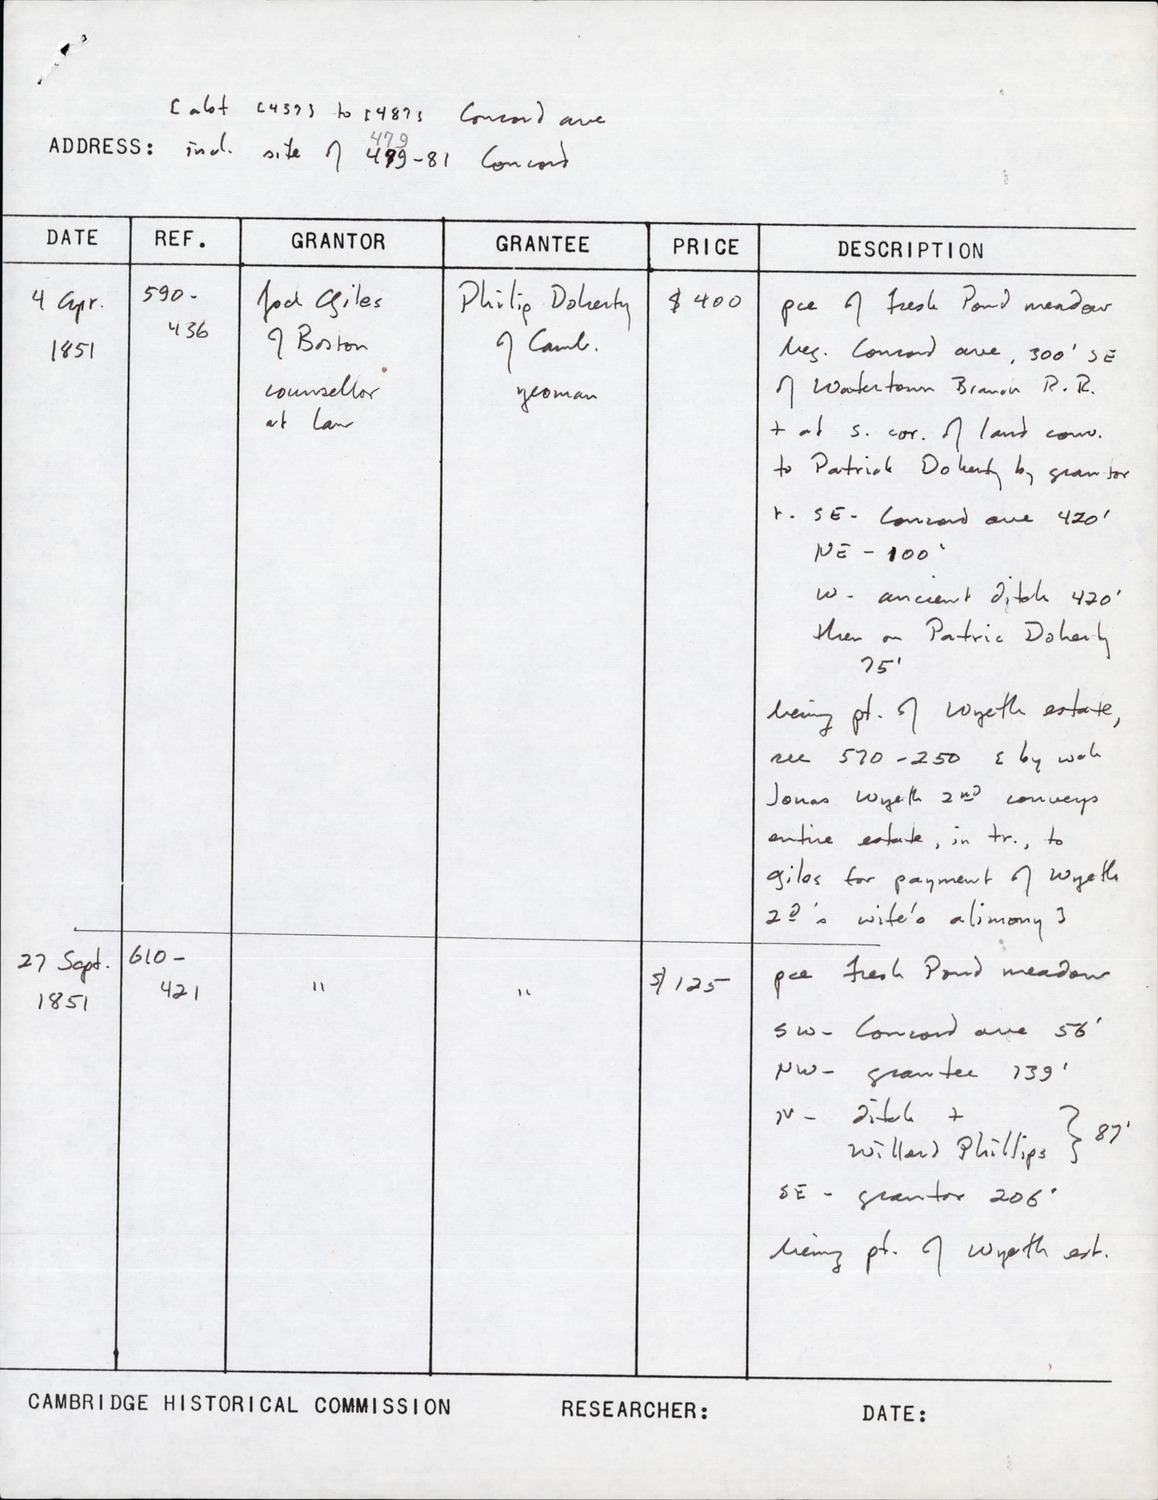 [abt [437] to [487] Concord ave
ADDRESS: incl. site of 479-81 Concord
479
DATE REF. GRANTOR GRANTEE PRICE DESCRIPTION
4 Apr. 1851
590-436
Joel Giles
of Boston
counsellor
at law
Philip Doherty
of Camb.
yeoman
$400
pce of Fresh Pond meadow
beg. Concord ave, 300' SE
of Watertown Branch R.R.
+ at s. cor. of land conv.
to Patrick Doherty by grantor
r. SE- Concord ave 420'
NE - 100'
W- ancient ditch 420'
then on Patric Doherty
75'
being pt. of Wyeth estate,
see 570-250 [ by wch
Jonas Wyeth 2nd conveys
entire estate, in tr., to
Giles for payment of Wyeth
2d's wife's alimony ]
27 Sept. 1851
610-421
"
"
$125
pce Fresh Pond meadow
SW- Concord ave 56'
NW- grantee 139'
N- ditch +
Willard Phillips } 87'
SE - grantor 206'
being pt. of Wyeth est.
CAMBRIDGE HISTORICAL COMMISSION RESEARCHER: DATE: